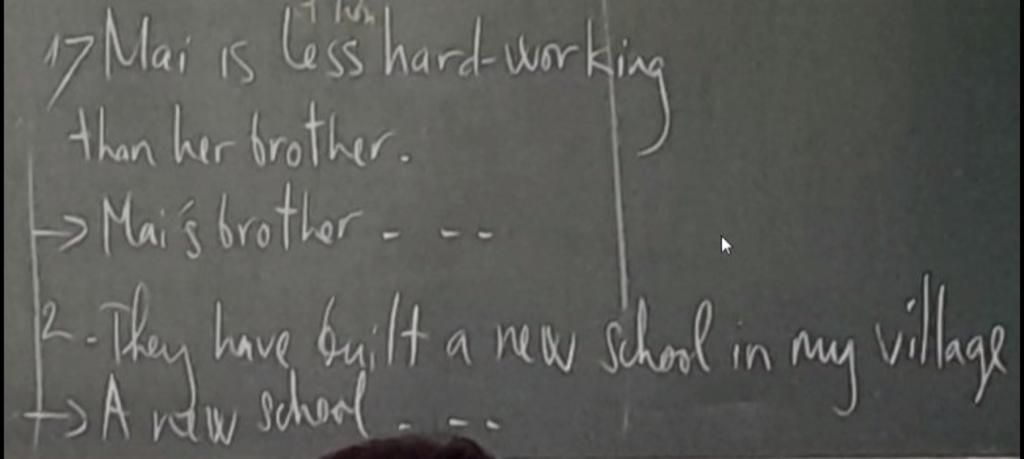 1) Mai is less hard-working
than her brother.
→ Mai's brother - - -
2 - They have built a new school in my village
→ A new school - - -